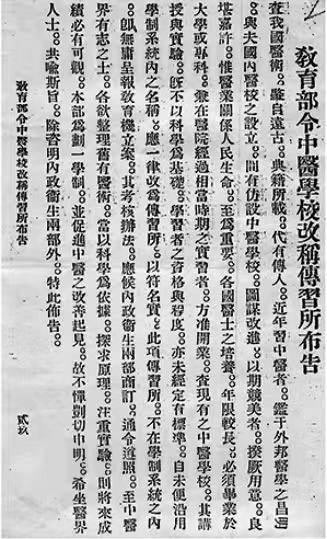 敎育部令中醫學校改稱傳習所布告
查我國醫術。肇自遠古。典籍所載。代有傳人。近年習中醫者。鑑于外邦醫學之昌明
。與夫國內醫校之設立。間有仿設中醫學校。圖謀改進。以期競美者。揆厥用意。良
堪嘉許。惟醫業關係人民生命。至爲重要。各國醫士之培養。年限較長。必須畢業於
大學或專科。兼在醫院經過相當時期之實習者。方准開業。查現有之中醫學校。其講
授與實驗。旣不以科學爲基礎。學習者之資格與程度。亦未經定有標準。自未便沿用
學制系統內之名稱。應一律改爲傳習所。以符名實。此項傳習所。不在學制系統之內
。卽無庸呈報敎育機立案。其考核辦法。應候內政衞生兩部商訂。通令遵照。至中醫
界有志之士。各欲整理舊有醫術。當以科學爲依據。探求原理。注重實驗。則將來成
績必有可觀。本部爲劃一學制。並促進中醫之改善起見。故不憚剴切申明。希坐醫界
人士。共喩斯旨。除咨明內政衞生兩部外。特此佈告。
敎育部令中醫學校改稱傳習所布告
貳玖